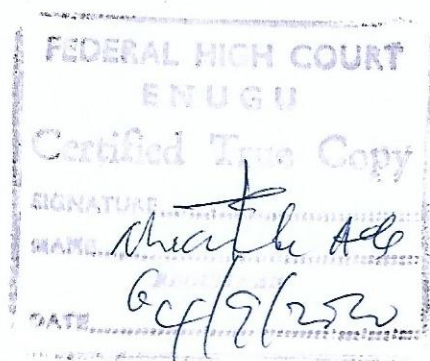 FEDERAL HIGH COURT
ENUGU
Certified True Copy
SIGNATURE
NAME
DATE 04/9/2020